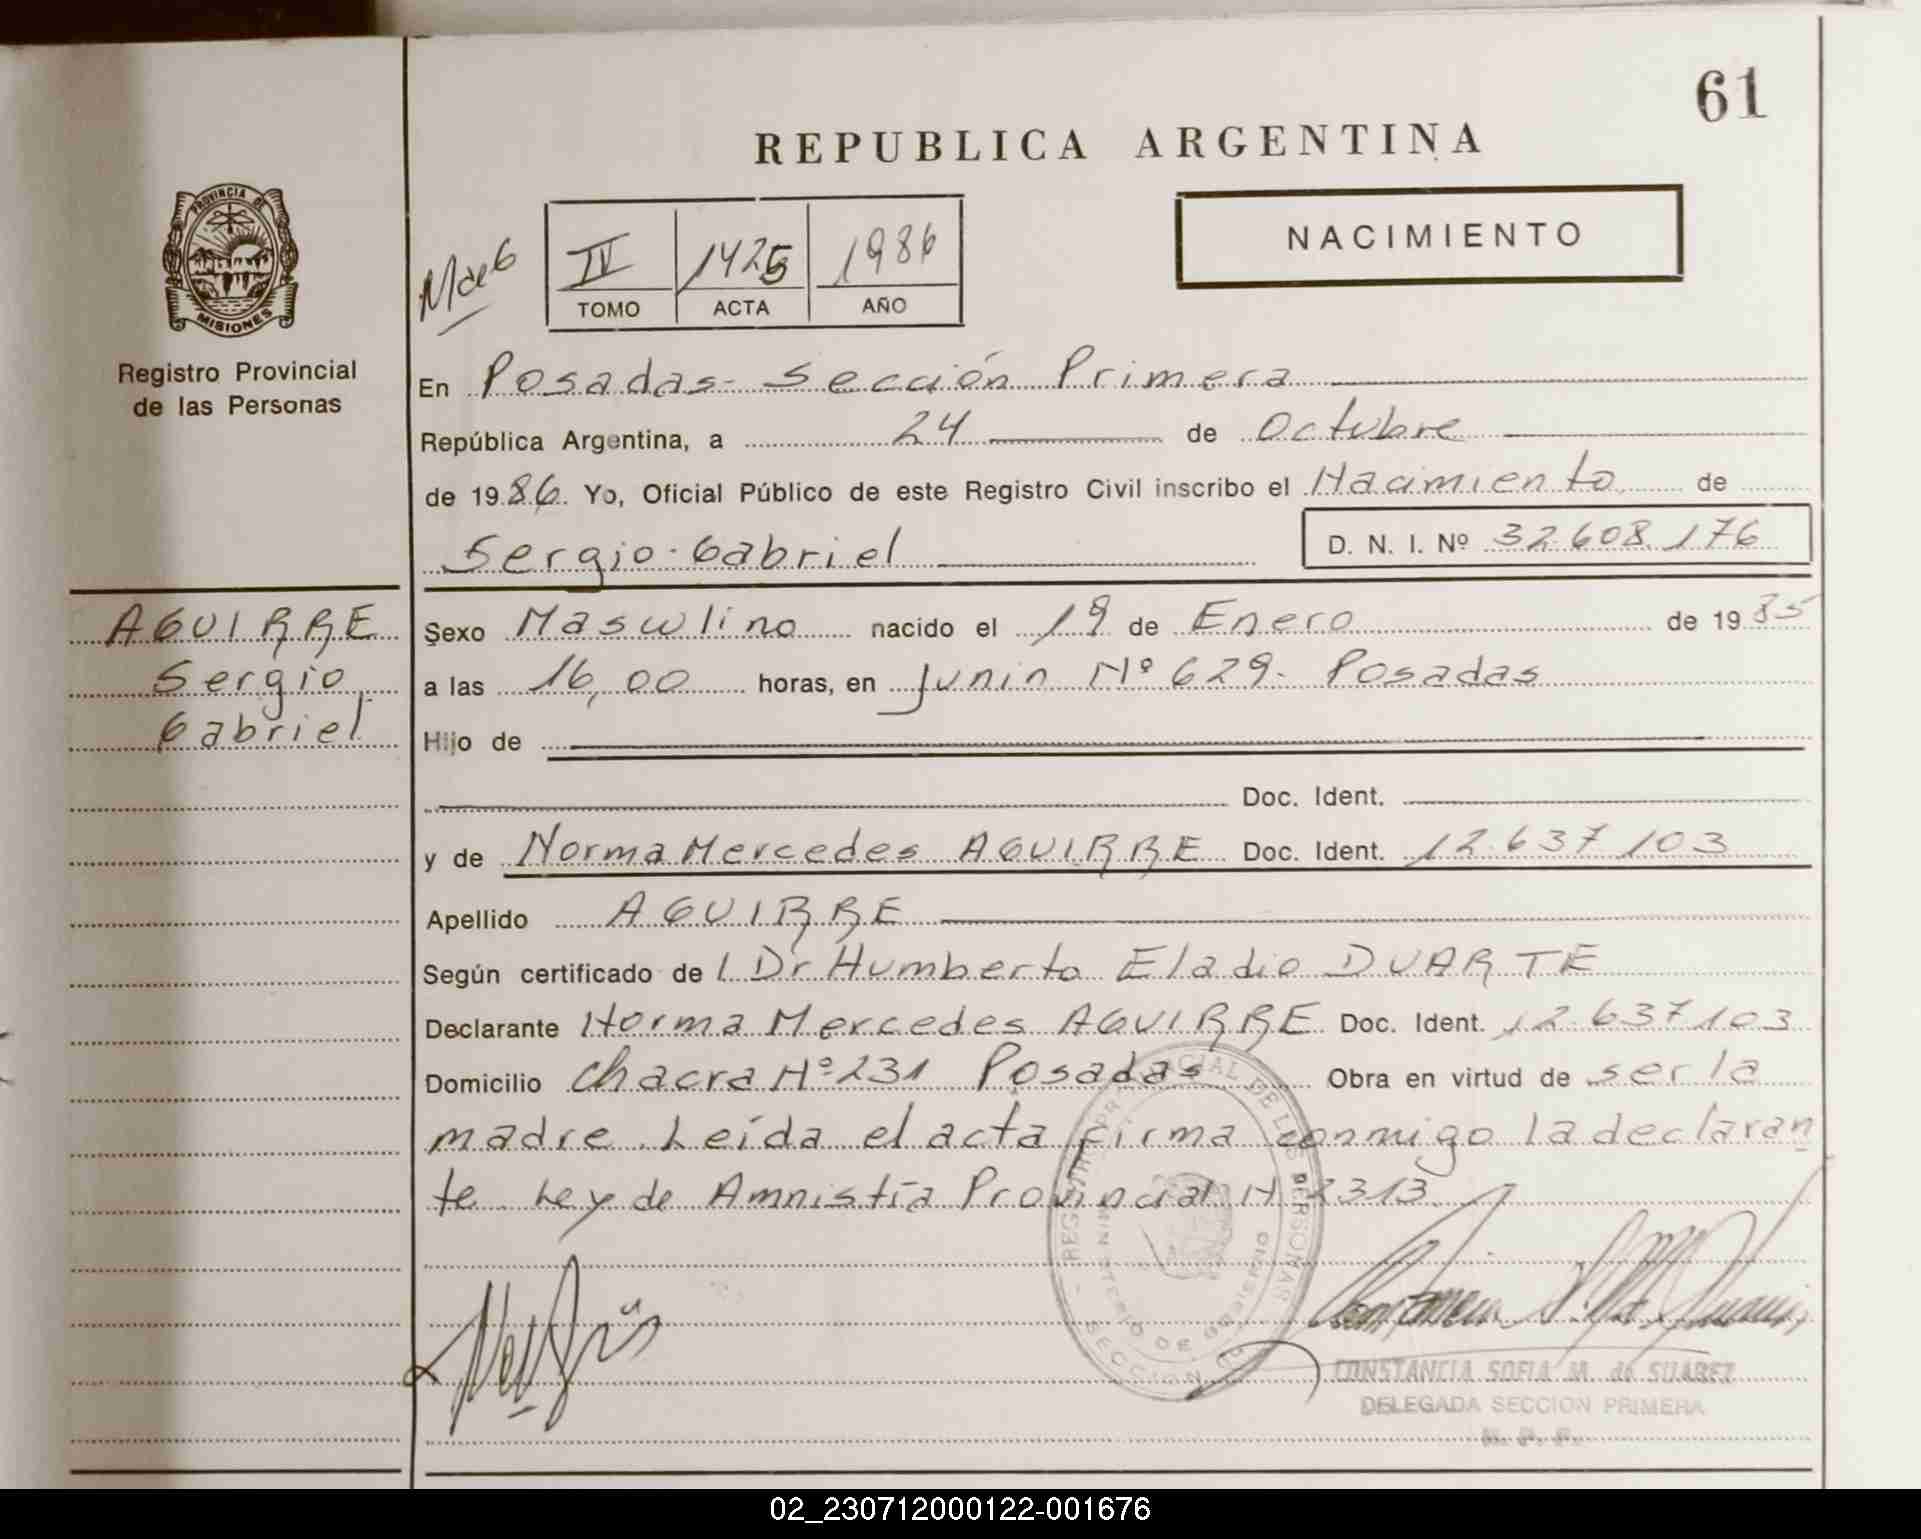 61
REPUBLICA ARGENTINA
PROVINCIA DE
MISIONES
Registro Provincial
de las Personas
IV 1425 1986
TOMO ACTA AÑO
NACIMIENTO
En Posadas- Sección Primera
República Argentina, a 24 de Octubre
de 1986. Yo, Oficial Público de este Registro Civil inscribo el Nacimiento de
Sergio Gabriel D. N. I. Nº 32.608.176
AGUIRRE
Sergio
Gabriel
Sexo Masculino nacido el 19 de Enero de 1985
a las 16,00 horas, en Junin Nº 629- Posadas
Hijo de
Doc. Ident.
y de Norma Mercedes AGUIRRE Doc. Ident. 12.637.103
Apellido AGUIRRE
Según certificado de l Dr Humberto Eladio DUARTE
Declarante Norma Mercedes AGUIRRE Doc. Ident. 12.637.103
Domicilio Chacra Nº 231 Posadas Obra en virtud de ser la
madre. Leída el acta firma conmigo la declaran
te. Ley de Amnistía Provincial N 2313.
CONSTANCIA SOFIA M. de SUAREZ
DELEGADA SECCION PRIMERA
R. P. P.
02_230712000122-001676